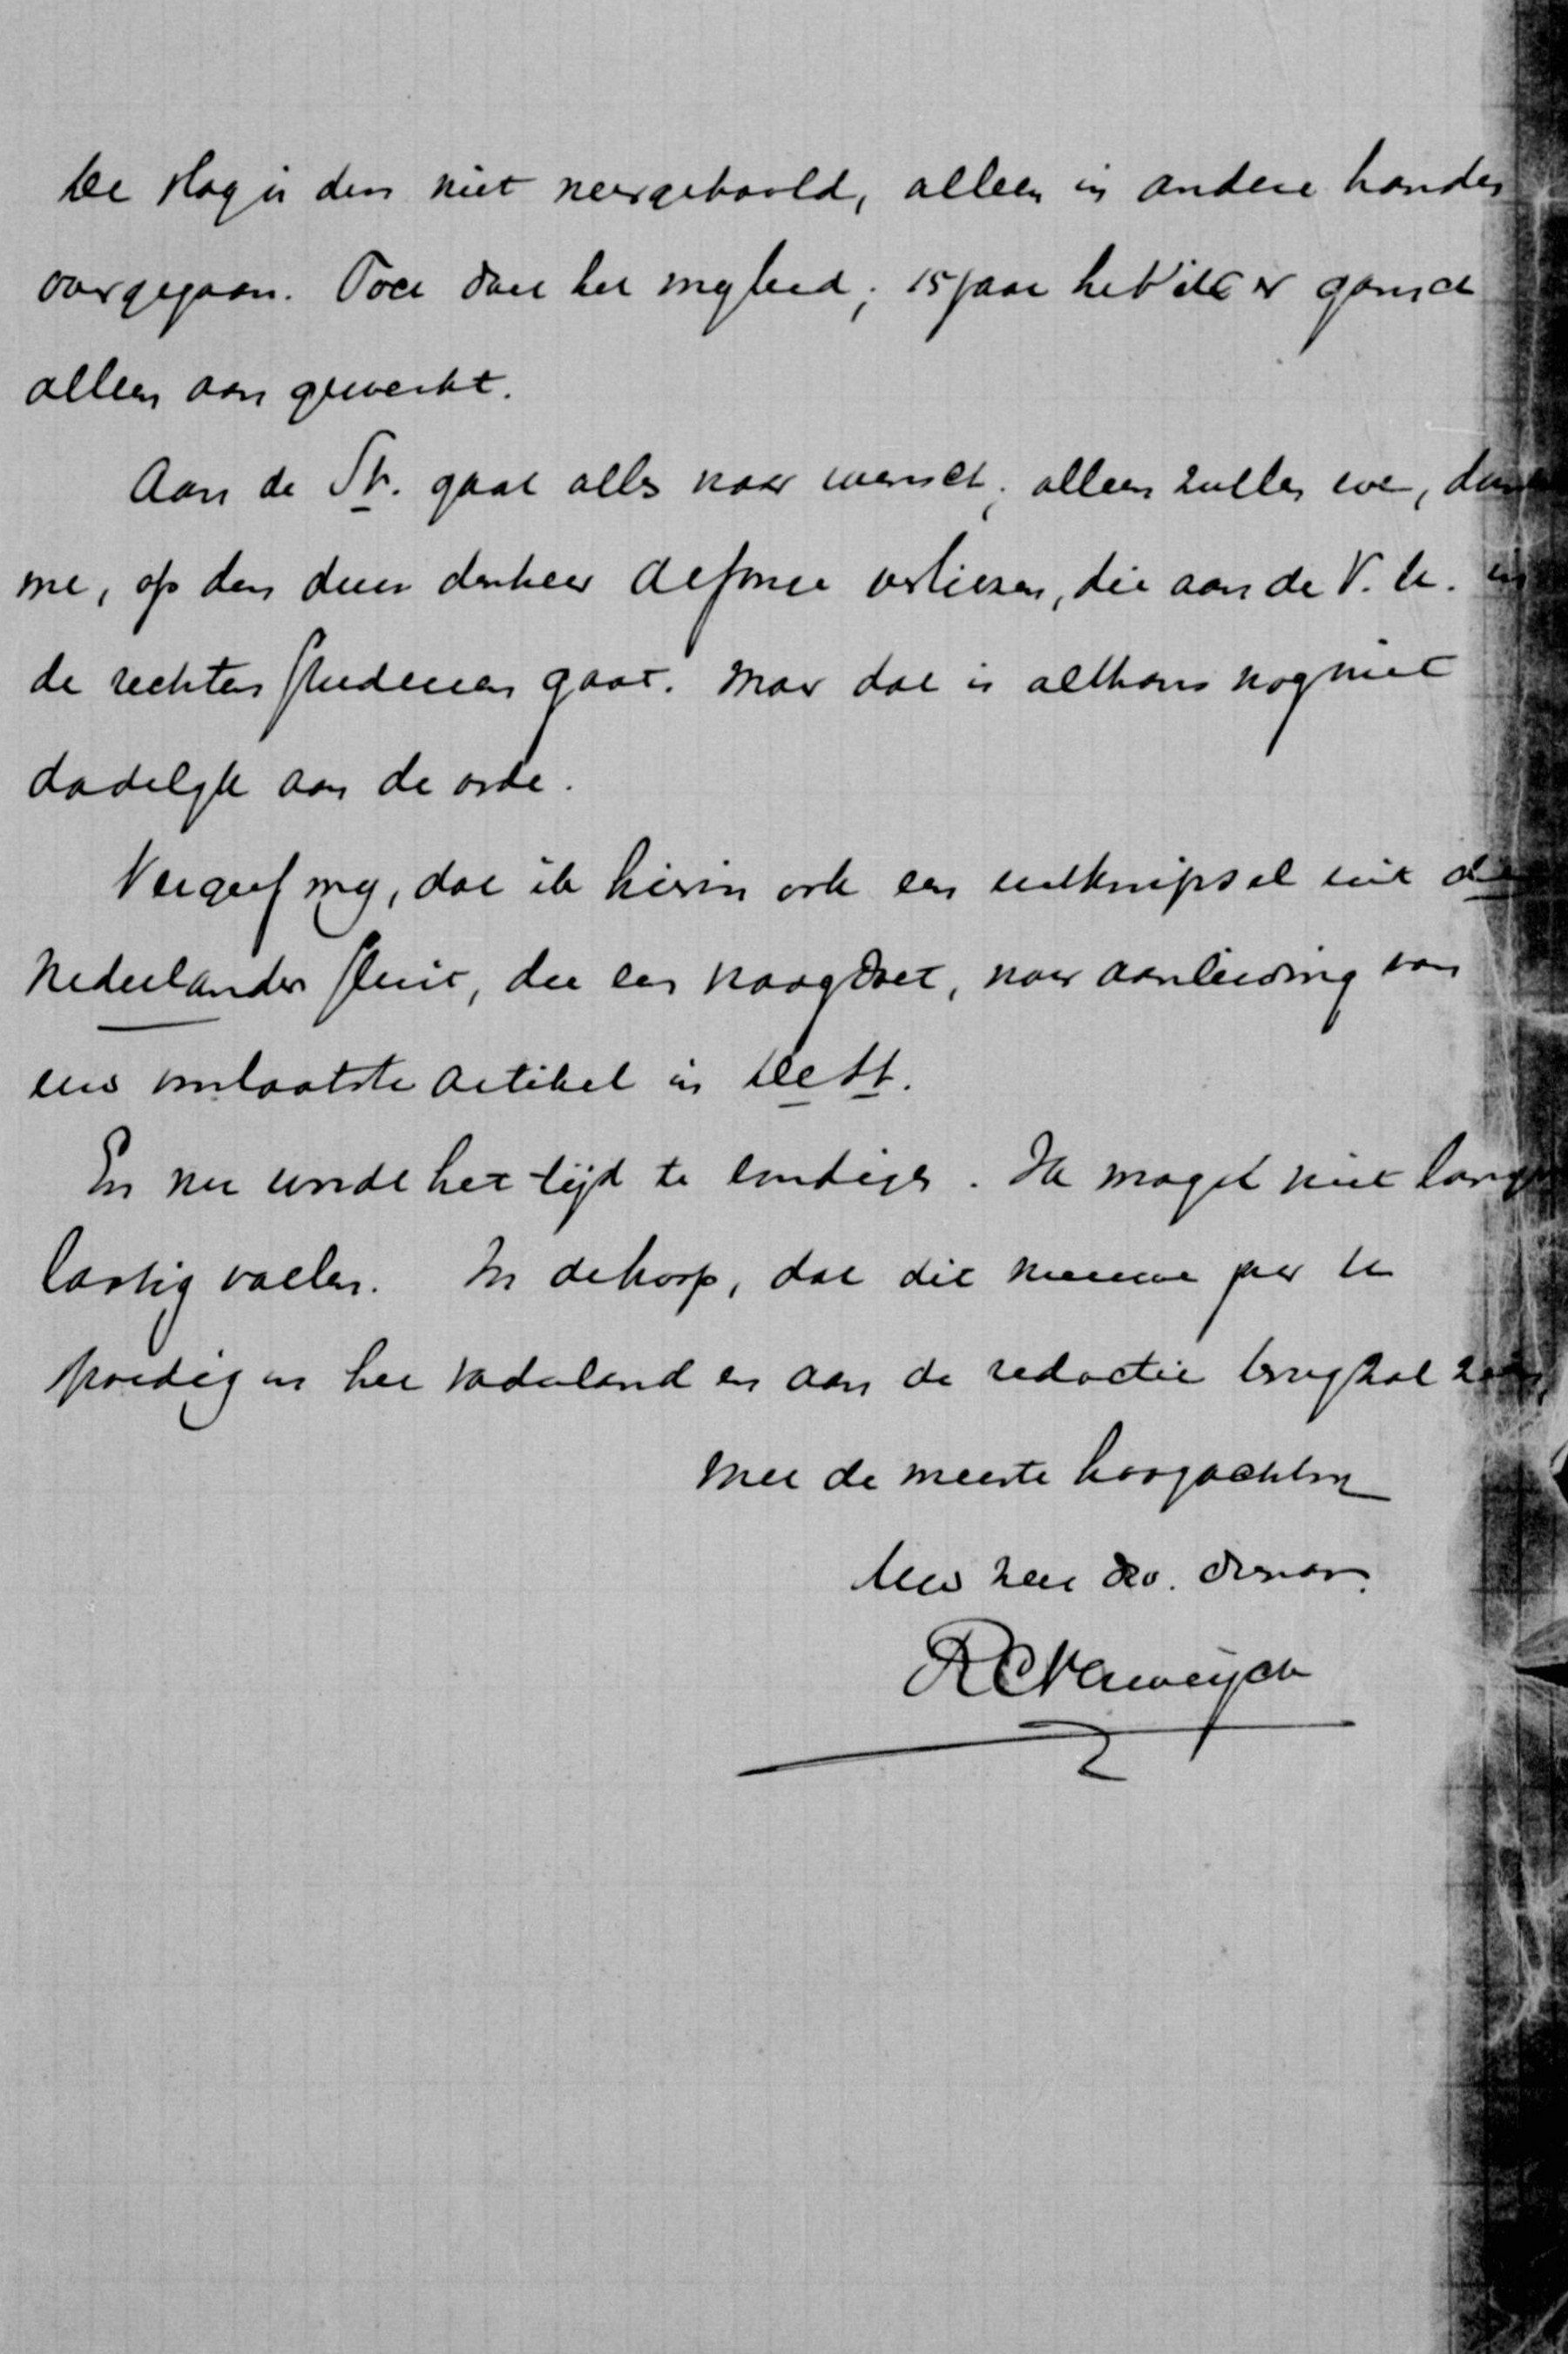 De vlag is dus niet neergehaald, alleen in andere handen
overgegaan. Toch doet het mij leed; 15 jaar heb ik er gansch
alleen aan gewerkt.
Aan de St. gaat alles naar wensch; alleen zullen we, dunkt
me, op den duur den heer verliezen, die aan de V. U. in
de rechten studeeren gaat. Maar dat is althans nog niet
dadelijk aan de orde.
Vergeef mij, dat ik hierin ook een uitknipsel uit de
Nederlander sluit, die een naogdoet, naar aanleiding van
uw laatste artikel in De St.
En nu wordt het tijd te eindigen. Ik mag U niet langer
lastig vallen. In de hoop, dat dit nummer per U
spoedig in het vaderland en aan de redactie terug zal zien,
Met de meeste hoogachting
Uw zeer dw. dienaar.
RCVerweyck